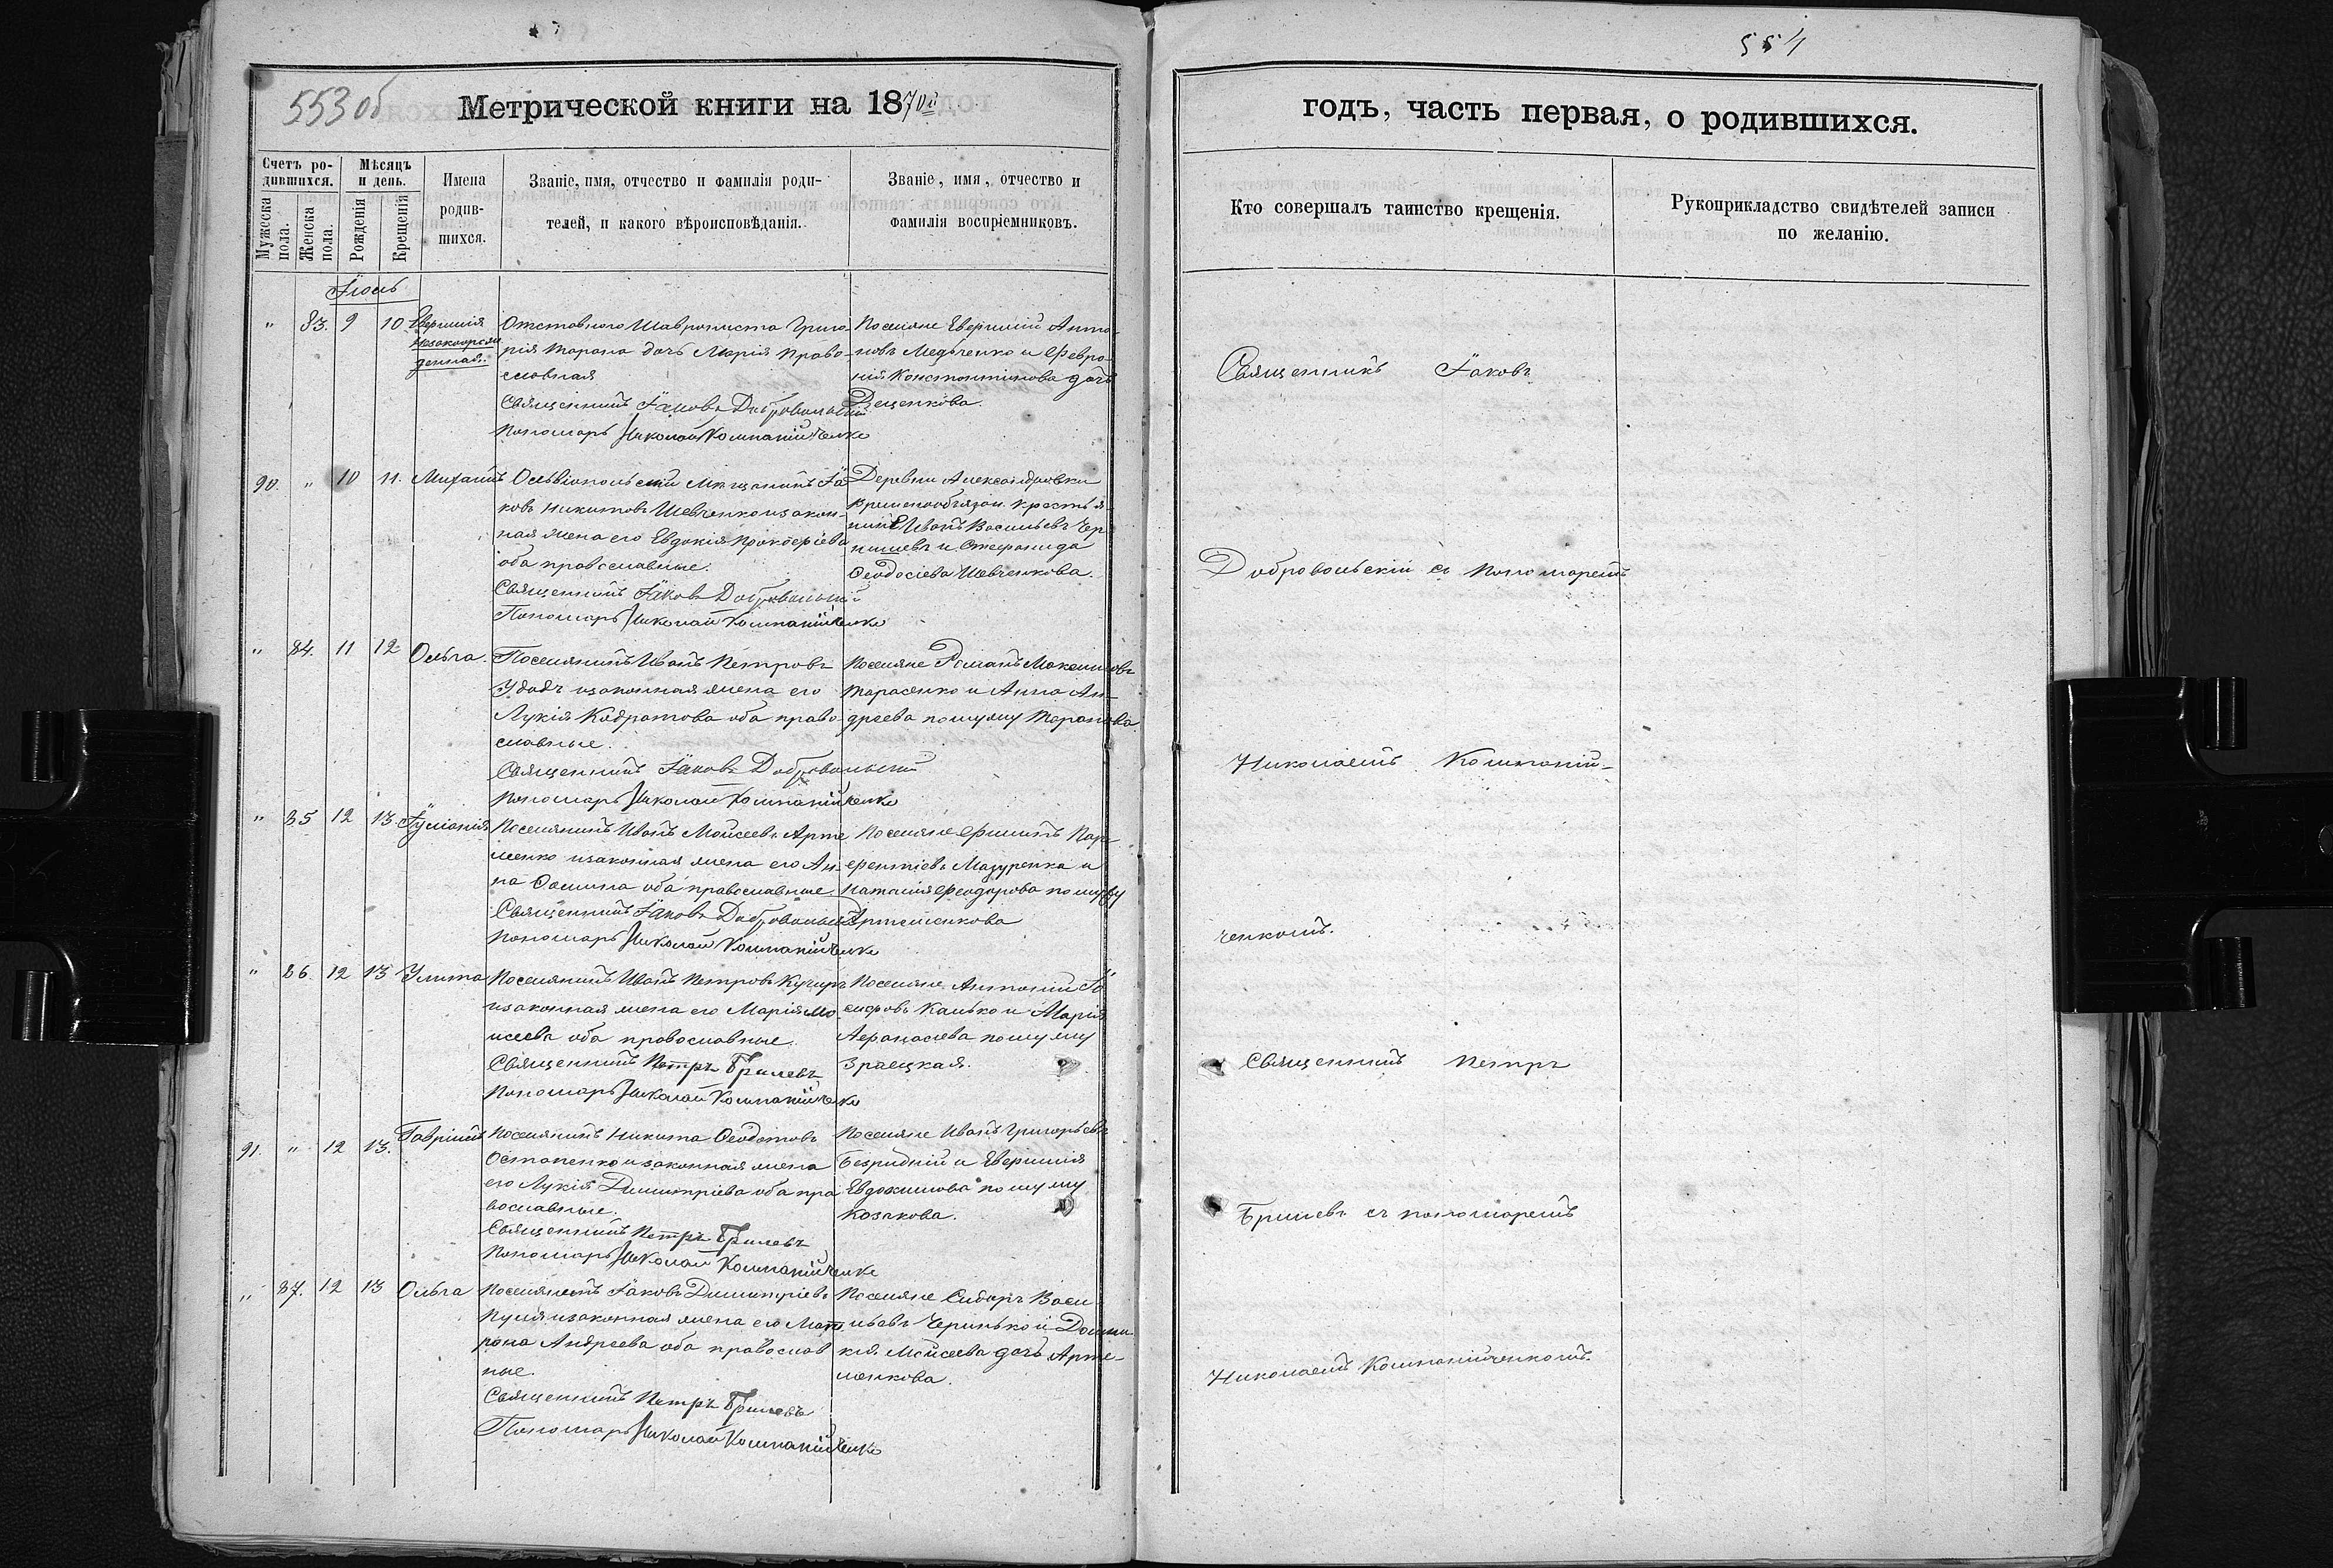 553 об
Метрической книги на 1870й
Счетъ родившихся.
Мѣсяцъ и день.
Мужеска пола.
Женска пола.
Рожденія
Крещенія
Имена родившихся.
Званіе, имя, отчество и фамилія родителей, и какого вѣроисповѣданія.
Званіе, имя, отчество и фамилія воспріемниковъ.
Іюнь
" 83. 9 10
незаконорожденная.
Отставного Григорія Тарана дочь Марія православная
Священникъ Іаковъ Добровольскій
Пономарь Николай Компанійченко
Поселяне Антоновъ и Февронія Константинова дочь Деценкова.
90. " 10 11. Михаилъ
Ольвіопольскій Мѣщанинъ Іаковъ Никитовъ Шевченко и законная жена его Евдокія Прокофіева оба православные.
Священникъ Іаковъ Добровольскій
Пономарь Николай Компанійченко
Деревни Александровки крестьянинъ Иванъ Васильевъ и Стефанида Феодосіева Шевченкова.
" 84. 11 12 Ольга.
Поселянинъ Иванъ Петровъ Удодъ и законная жена его Лукія Кодратова оба православные.
Священникъ Іаковъ Добровольскій
Пономарь Николай Компанійченко
Поселяне Романъ Максимовъ Тарасенко и Анна Андреева по мужу Таранова.
" 85 12 13. Іуліанія
Поселянинъ Иванъ Моисеевъ Артеменко и законная жена его Анна Фомина оба православные
Священникъ Іаковъ Добровольскій
Пономарь Николай Компанійченко
Поселяне Филипъ Парфентіевъ Мазуренка и Наталія Феодорова по мужу Артеменкова
" 86. 12 13 Улита
Поселянинъ Иванъ Петровъ Кучеръ и законная жена его Марія Моисеева оба православные.
Священникъ Петръ Брилевъ
Пономарь Николай Компанійченко
Поселяне Антоній Іосифовъ Калько и Марія Афанасіева по мужу Зраецкая.
91. " 12 13. Гавріилъ
Поселянинъ Никита Феодотовъ Остапенко и законная жена его Лукія Димитріева оба православные.
Священникъ Петръ Брилевъ
Пономарь Николай Компанійченко
Поселяне Иванъ Григорьевъ Безридній и Евфимія Евдокимова по мужу Козакова.
" 87. 12 13 Ольга
Поселянинъ Іаковъ Димитріевъ Пуля и законная жена его Матрона Андреева оба православные.
Священникъ Петръ Брилевъ
Пономарь Николай Компанійченко
Поселяне Сидоръ Васильевъ и Домникія Моисеева дочь Артеменкова.
554
годъ, часть первая, о родившихся.
Кто совершалъ таинство крещенія.
Рукоприкладство свидѣтелей записи по желанію.
Священникъ Іаковъ
Добровольскій съ пономаремъ
Николаемъ Компаній-
ченкомъ.
Священникъ Петръ
Брилевъ съ пономаремъ
Николаемъ Компанійченкомъ.